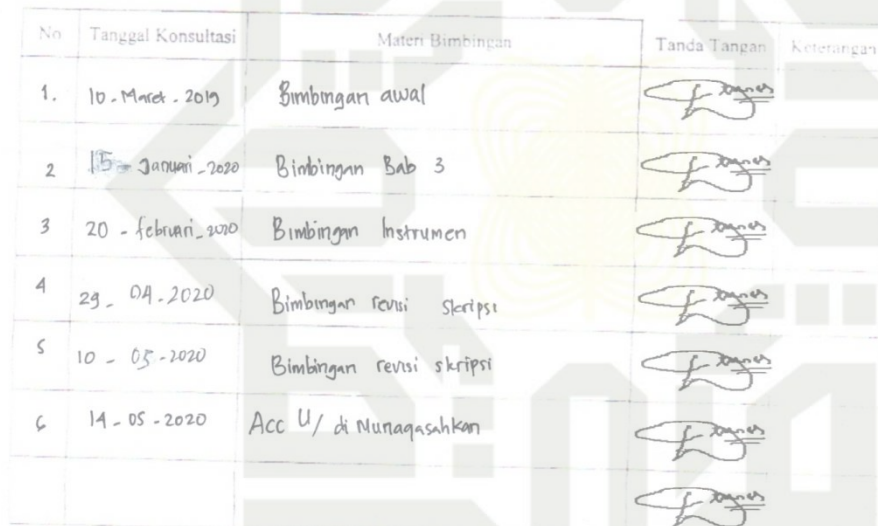 No Tanggal Konsultasi Materi Bimbingan Tanda Tangan Keterangan
1. 10 - Maret - 2019 Bimbingan awal
2 15 - Januari - 2020 Bimbingan Bab 3
3 20 - februari - 2020 Bimbingan Instrumen
4 29 - 04 - 2020 Bimbingan revisi Skripsi
5 10 - 05 - 2020 Bimbingan revisi skripsi
6 14 - 05 - 2020 Acc U/ di Munaqasahkan